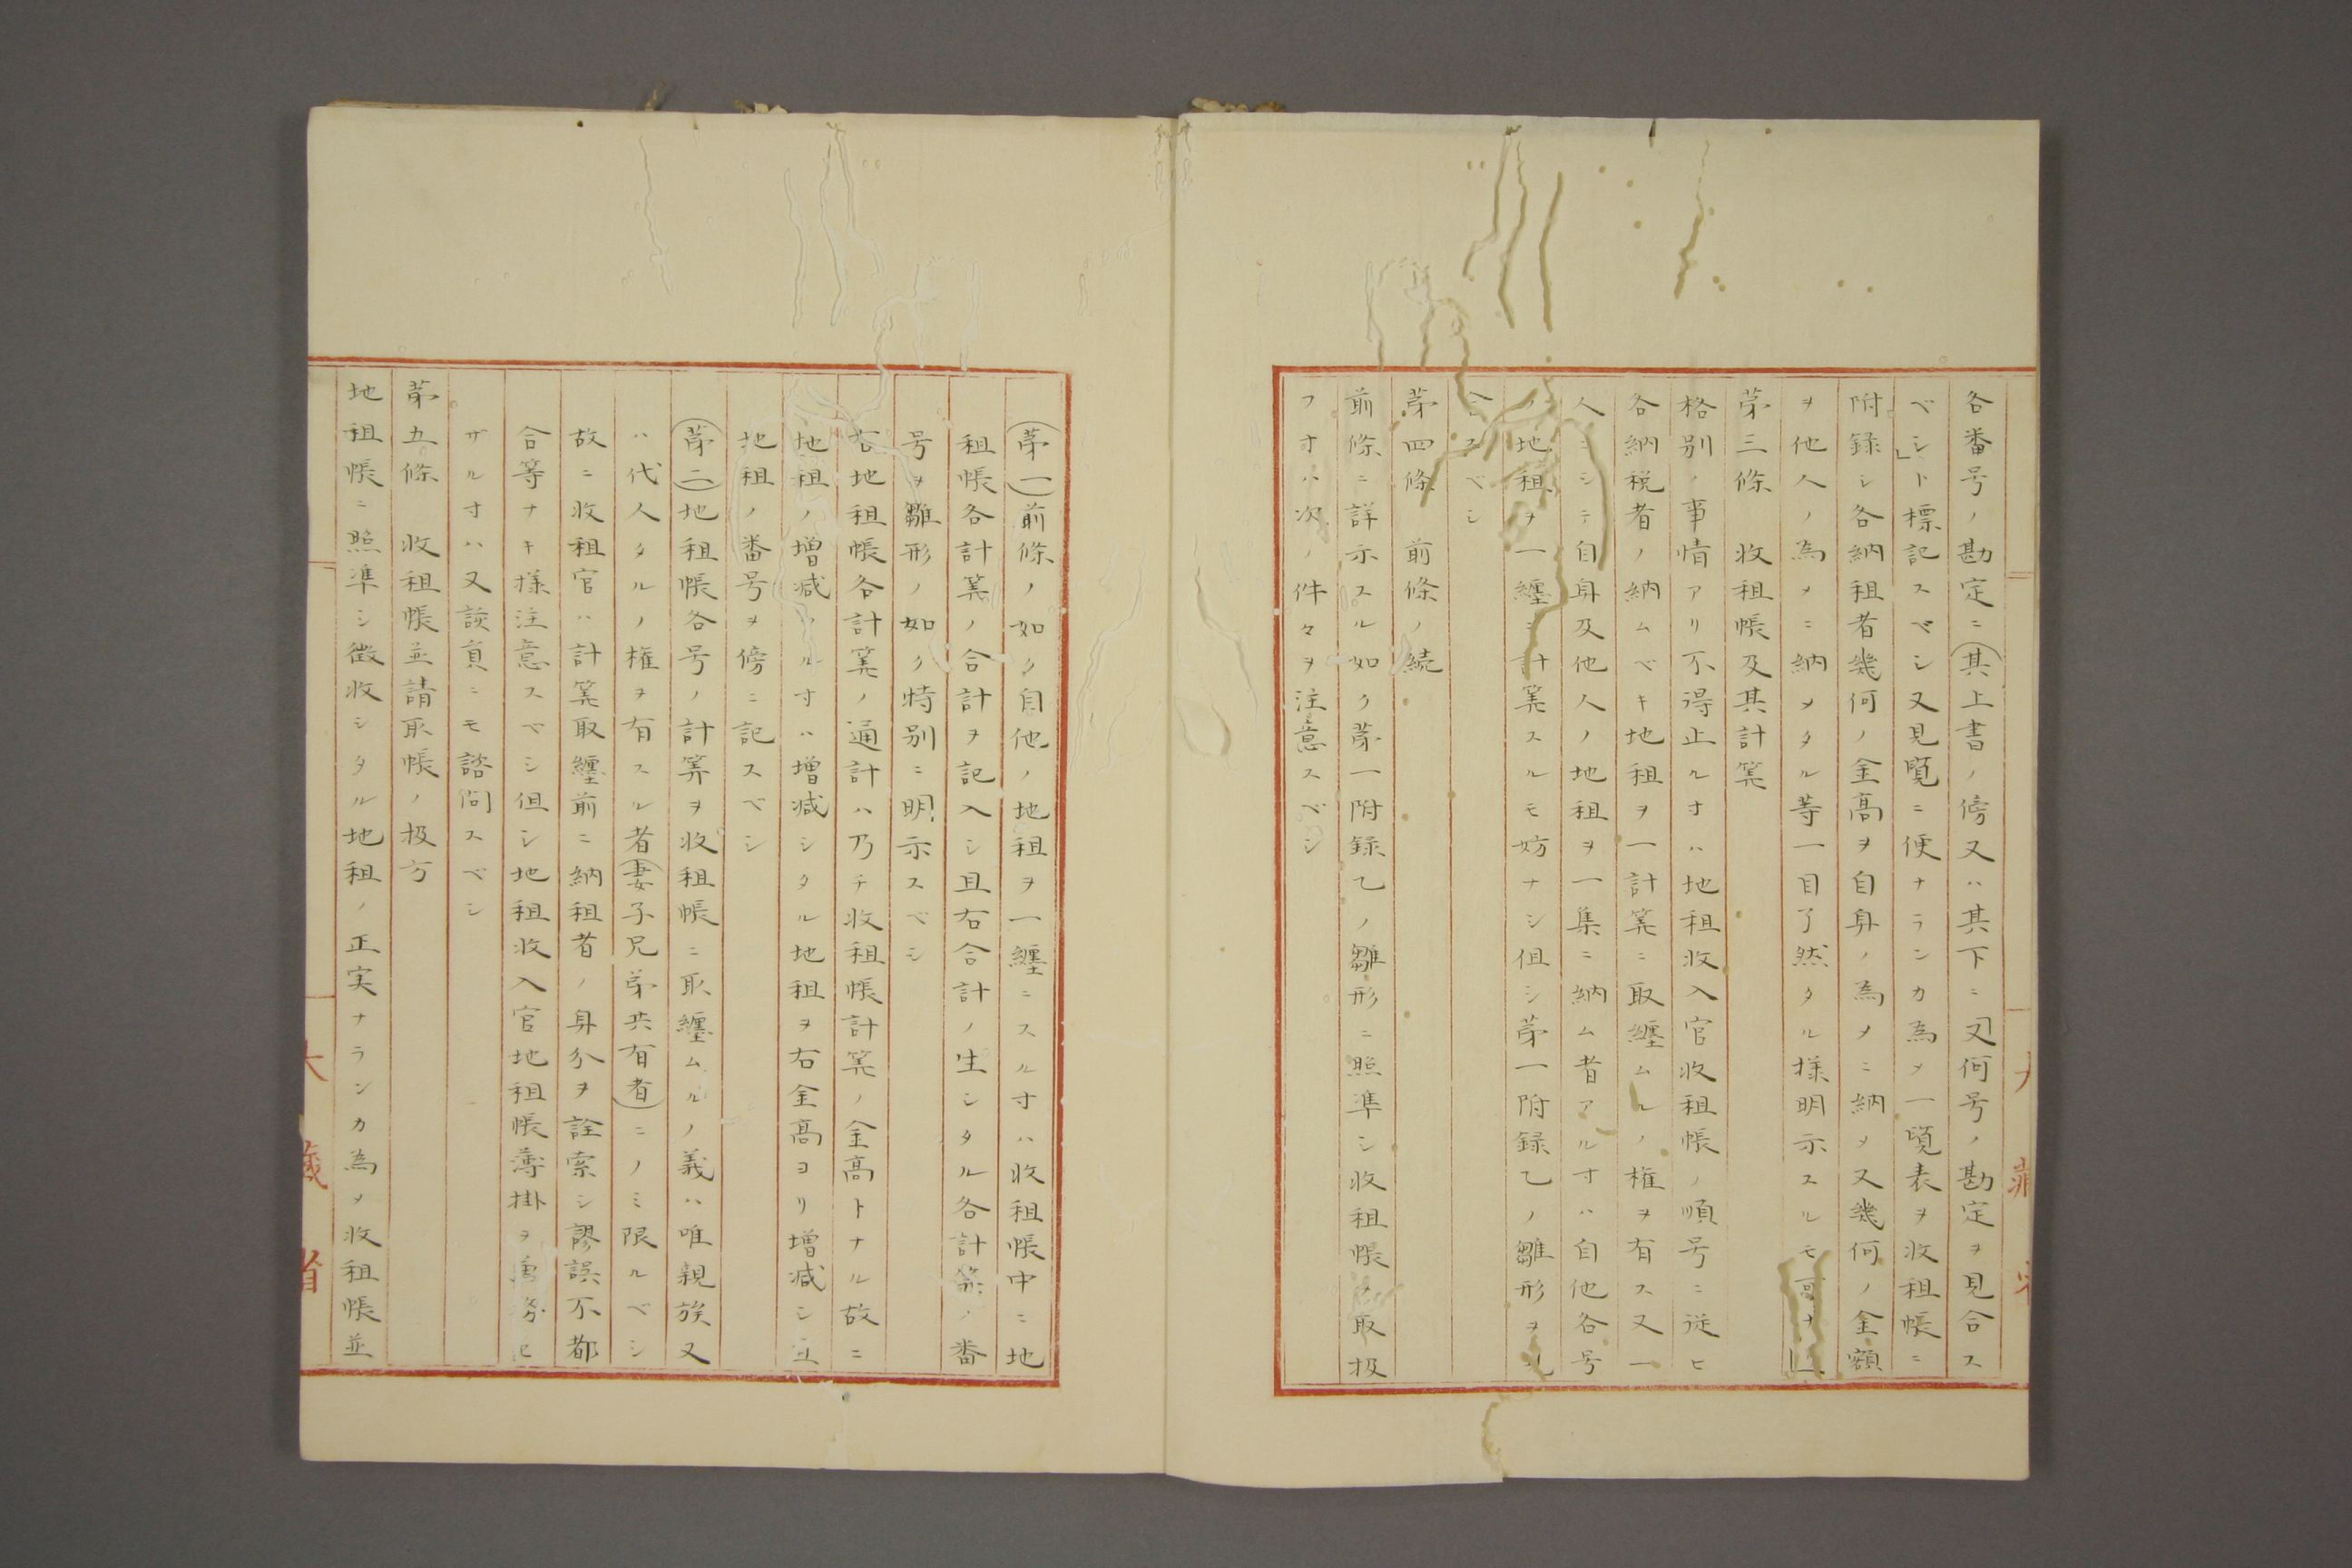 各番号ノ勘定ニ(其上書ノ傍又ハ其下ニ又何号ノ勘定ヲ見合ス
ベシ」ト標記スベシ又見覧ニ便ナランカ為メ一覧表ヲ收租帳ニ
附録シ各納租者幾何ノ金高ヲ自身ノ為メニ納メ又幾何ノ金額
ヲ他人ノ為メニ納メタル等一目了然タル様明示スルモ可ナ
苐三條 收租帳及其計筭
格別ノ事情アリ不得止ルオハ地租收入官收租帳ノ順号ニ従ヒ
各納税者ノ納ムベキ地租ヲ一計筭ニ取纏ムルノ権ヲ有ス又一
人ニシテ自身及他人ノ地租ヲ一集ニ納ム者アルオハ自他各号
ノ地租ヲ一纏ニ計筭スルモ妨ナシ但シ苐一附録乙ノ雛形ヲ
スベシ
苐四條 前條ノ続
前條ニ詳示スル如ク苐一附録乙ノ雛形ニ照準シ收租帳ヲ取扱
フオハ次ノ件々ヲ注意スベシ
(苐一)前條ノ如ク自他ノ地租ヲ一纏ニスルオハ收租帳中ニ地
租帳各計筭ノ合計ヲ記入シ且右合計ノ生シタル各計筭ノ番
号ヲ雛形ノ如ク特別ニ明示スベシ
右地租帳各計筭ノ通計ハ乃チ收租帳計筭ノ金高トナル故ニ
地租ノ増減アルオハ増減シタル地租ヲ右金高ヨリ増減シ且
地租ノ番号ヲ傍ニ記スベシ
(苐二)地租帳各号ノ計筭ヲ收租帳ニ取纏ムルノ義ハ唯親族又
ハ代人タルノ権ヲ有スル者(妻子兄弟共有者)ニノミ限ルベシ
故ニ收租官ハ計筭取纏前ニ納租者ノ身分ヲ詮索シ謬誤不都
合等ナキ様注意スベシ但シ地租收入官地租帳薄掛ヲ
ザルオハ又談員ニモ諮問スベシ
苐五條 收租帳並請取帳ノ扱方
地租帳ニ照準シ徴收シタル地租ノ正実ナランカ為メ收租帳並
大藏省